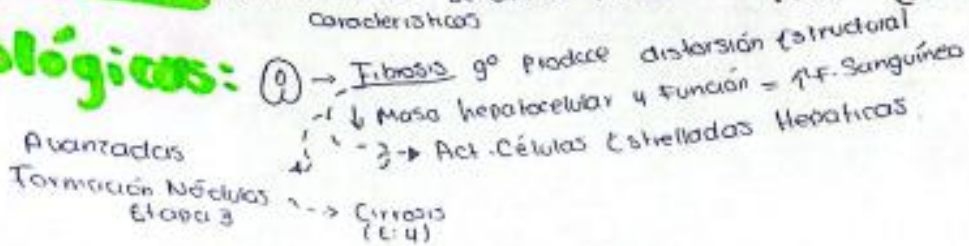 Caracteristicos
lógicos: ① → Fibrosis gº Produce distorsión Estructural
↓ Masa hepatocelular y Función = F. Sanguíneo
→ Act. Células Estrelladas Hepaticas
Avanzadas
Formación Nódulos
Etapa 3
--> Cirrosis
(E:4)